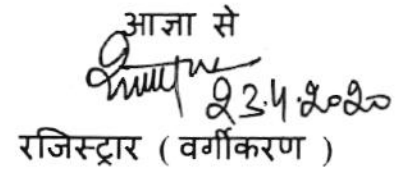 आज्ञा से
23.4.2020
रजिस्ट्रार ( वर्गीकरण )